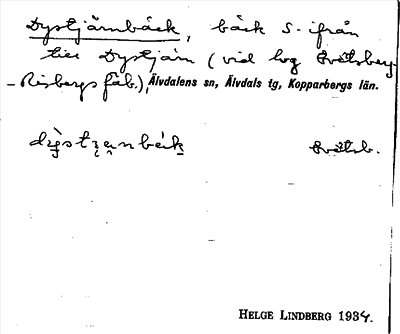 Dystjärnbäck, bäck S-ifrån
till Dystjärn (vid lvg Evertsberg
- Risbergs fäb.), Älvdalens sn, Älvdals tg, Kopparbergs län.
Evertsb.
HELGE LINDBERG 1934.